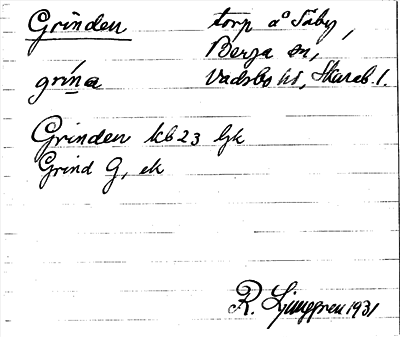 Grinden torp å Täby,
Berga sn,
grína Vadsbo hd, Skarab. l.
Grinden kb 23 ljk
Grind G, ek
R. Ljunggren 1931